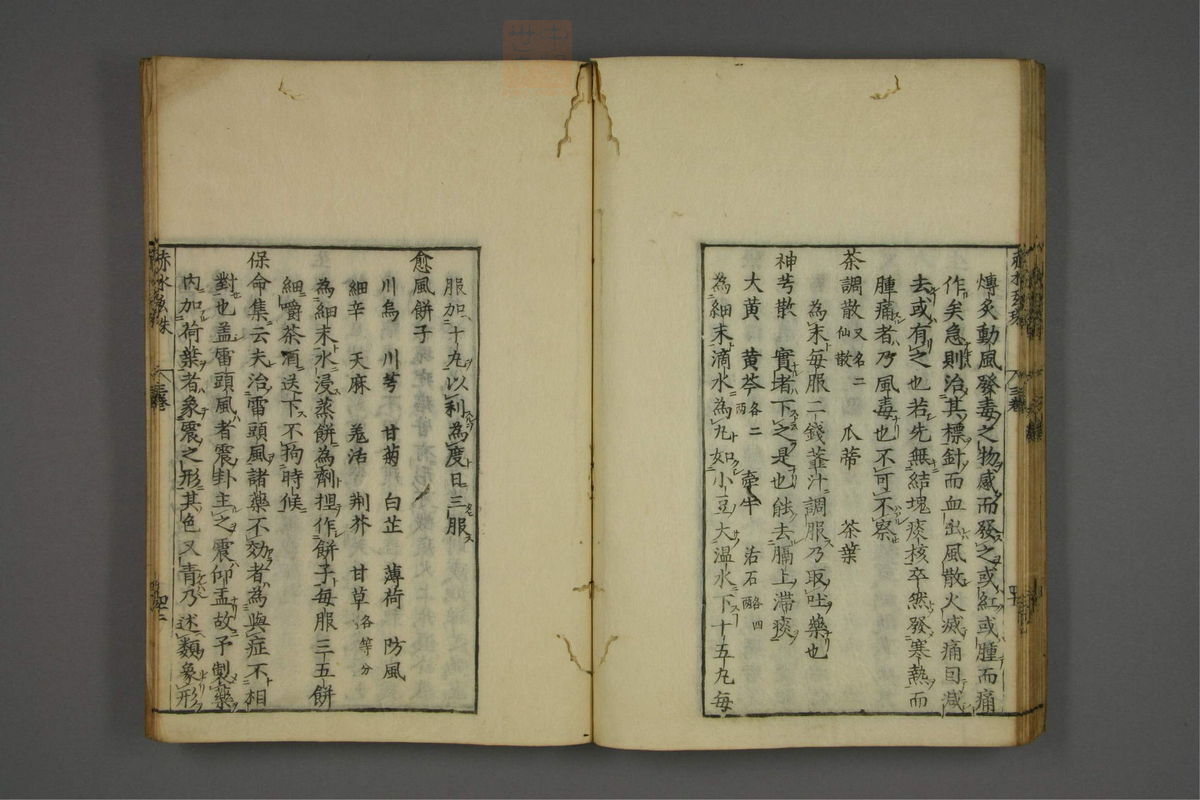 燁炙動風發毒之物感而發之或紅或腫而痛
作矣急則治其標針而血出風散火滅痛自減
去或有之也若先無結塊痰核卒然發寒熱而
腫痛者乃風毒也不可不察
茶調散又名二仙散 瓜蒂 茶葉
為末每服二錢虀汁調服乃取吐藥也
神芎散 實者下之是也能去膈上滯痰
大黄 黄芩各二兩 牽牛 滑石各四兩
為細末滴水為丸如小豆大溫水下十五丸每
服加十丸以利為度日三服
愈風餅子
川烏 川芎 甘菊 白芷 薄荷 防風
細辛 天麻 羌活 荊芥 甘草各等分
為細末水浸蒸餅為劑揑作餅子每服三五餅
細嚼茶酒送下不拘時候
保命集云夫治雷頭風諸藥不効者為與症不相
對也盖雷頭風者震卦主之震仰盂故予製藥
内加荷葉者象震之形其色又青乃述類象形
赤水玄珠 三卷